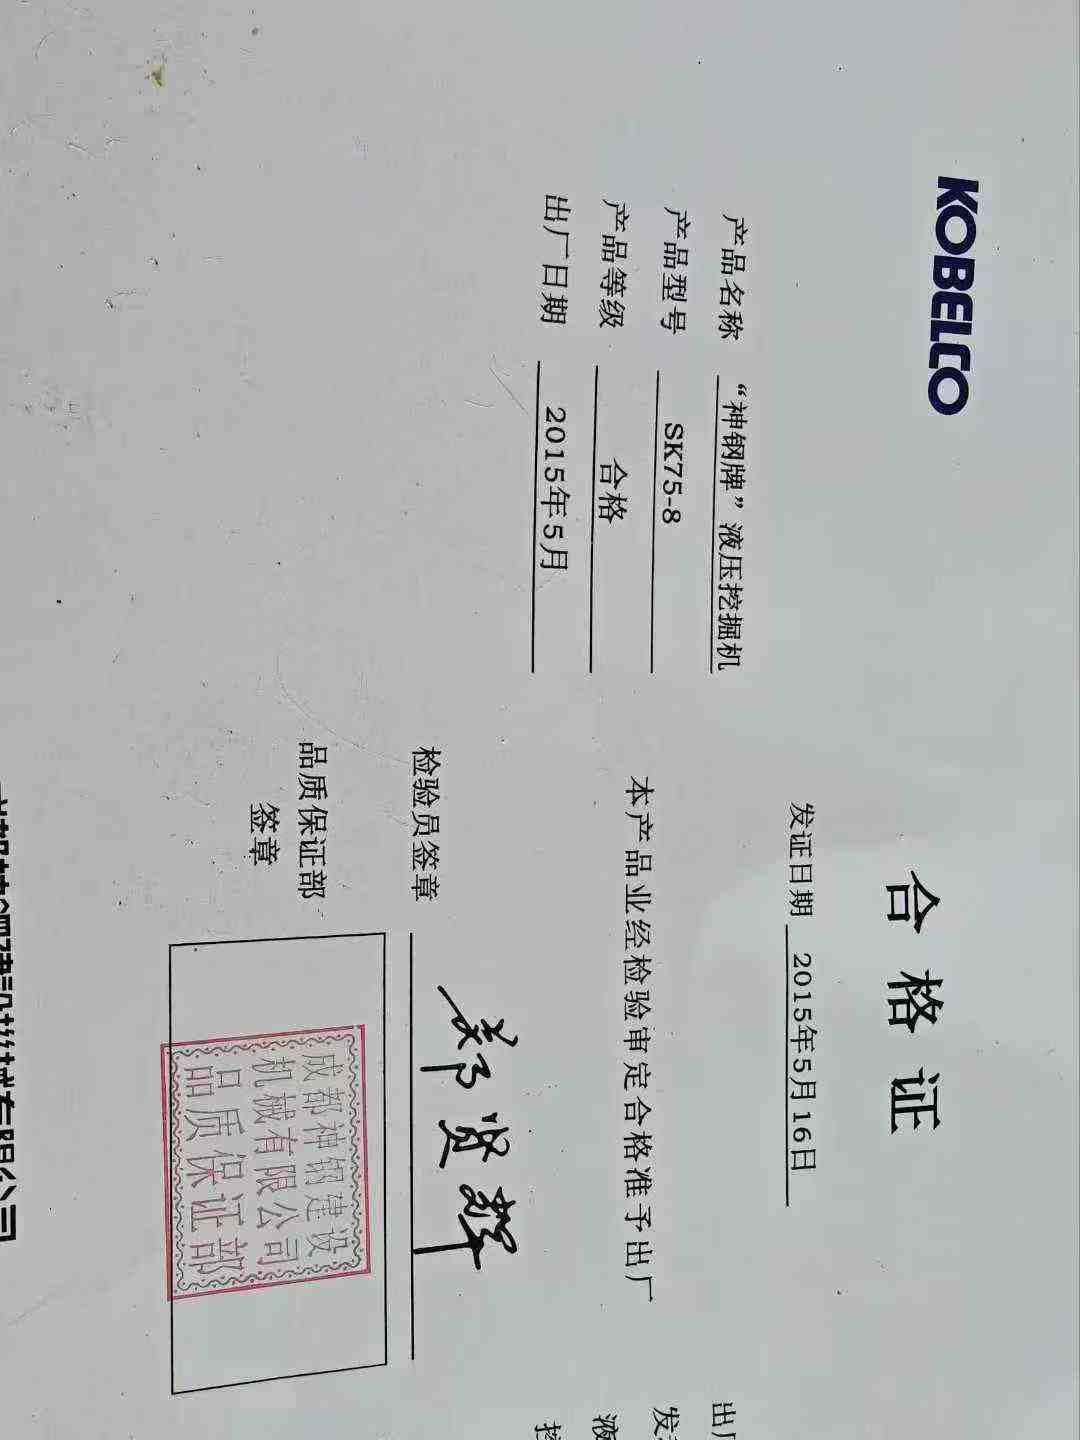 KOBELCO
合格证
发证日期 2015年5月16日
产品名称 “神钢牌”液压挖掘机
产品型号 SK75-8
产品等级 合格
出厂日期 2015年5月
本产品业经检验审定合格准予出厂
检验员签章 郑贤辉
品质保证部
签章
成都神钢建设
机械有限公司
品质保证部
出厂
发
液
挖
成都神钢建设机械有限公司